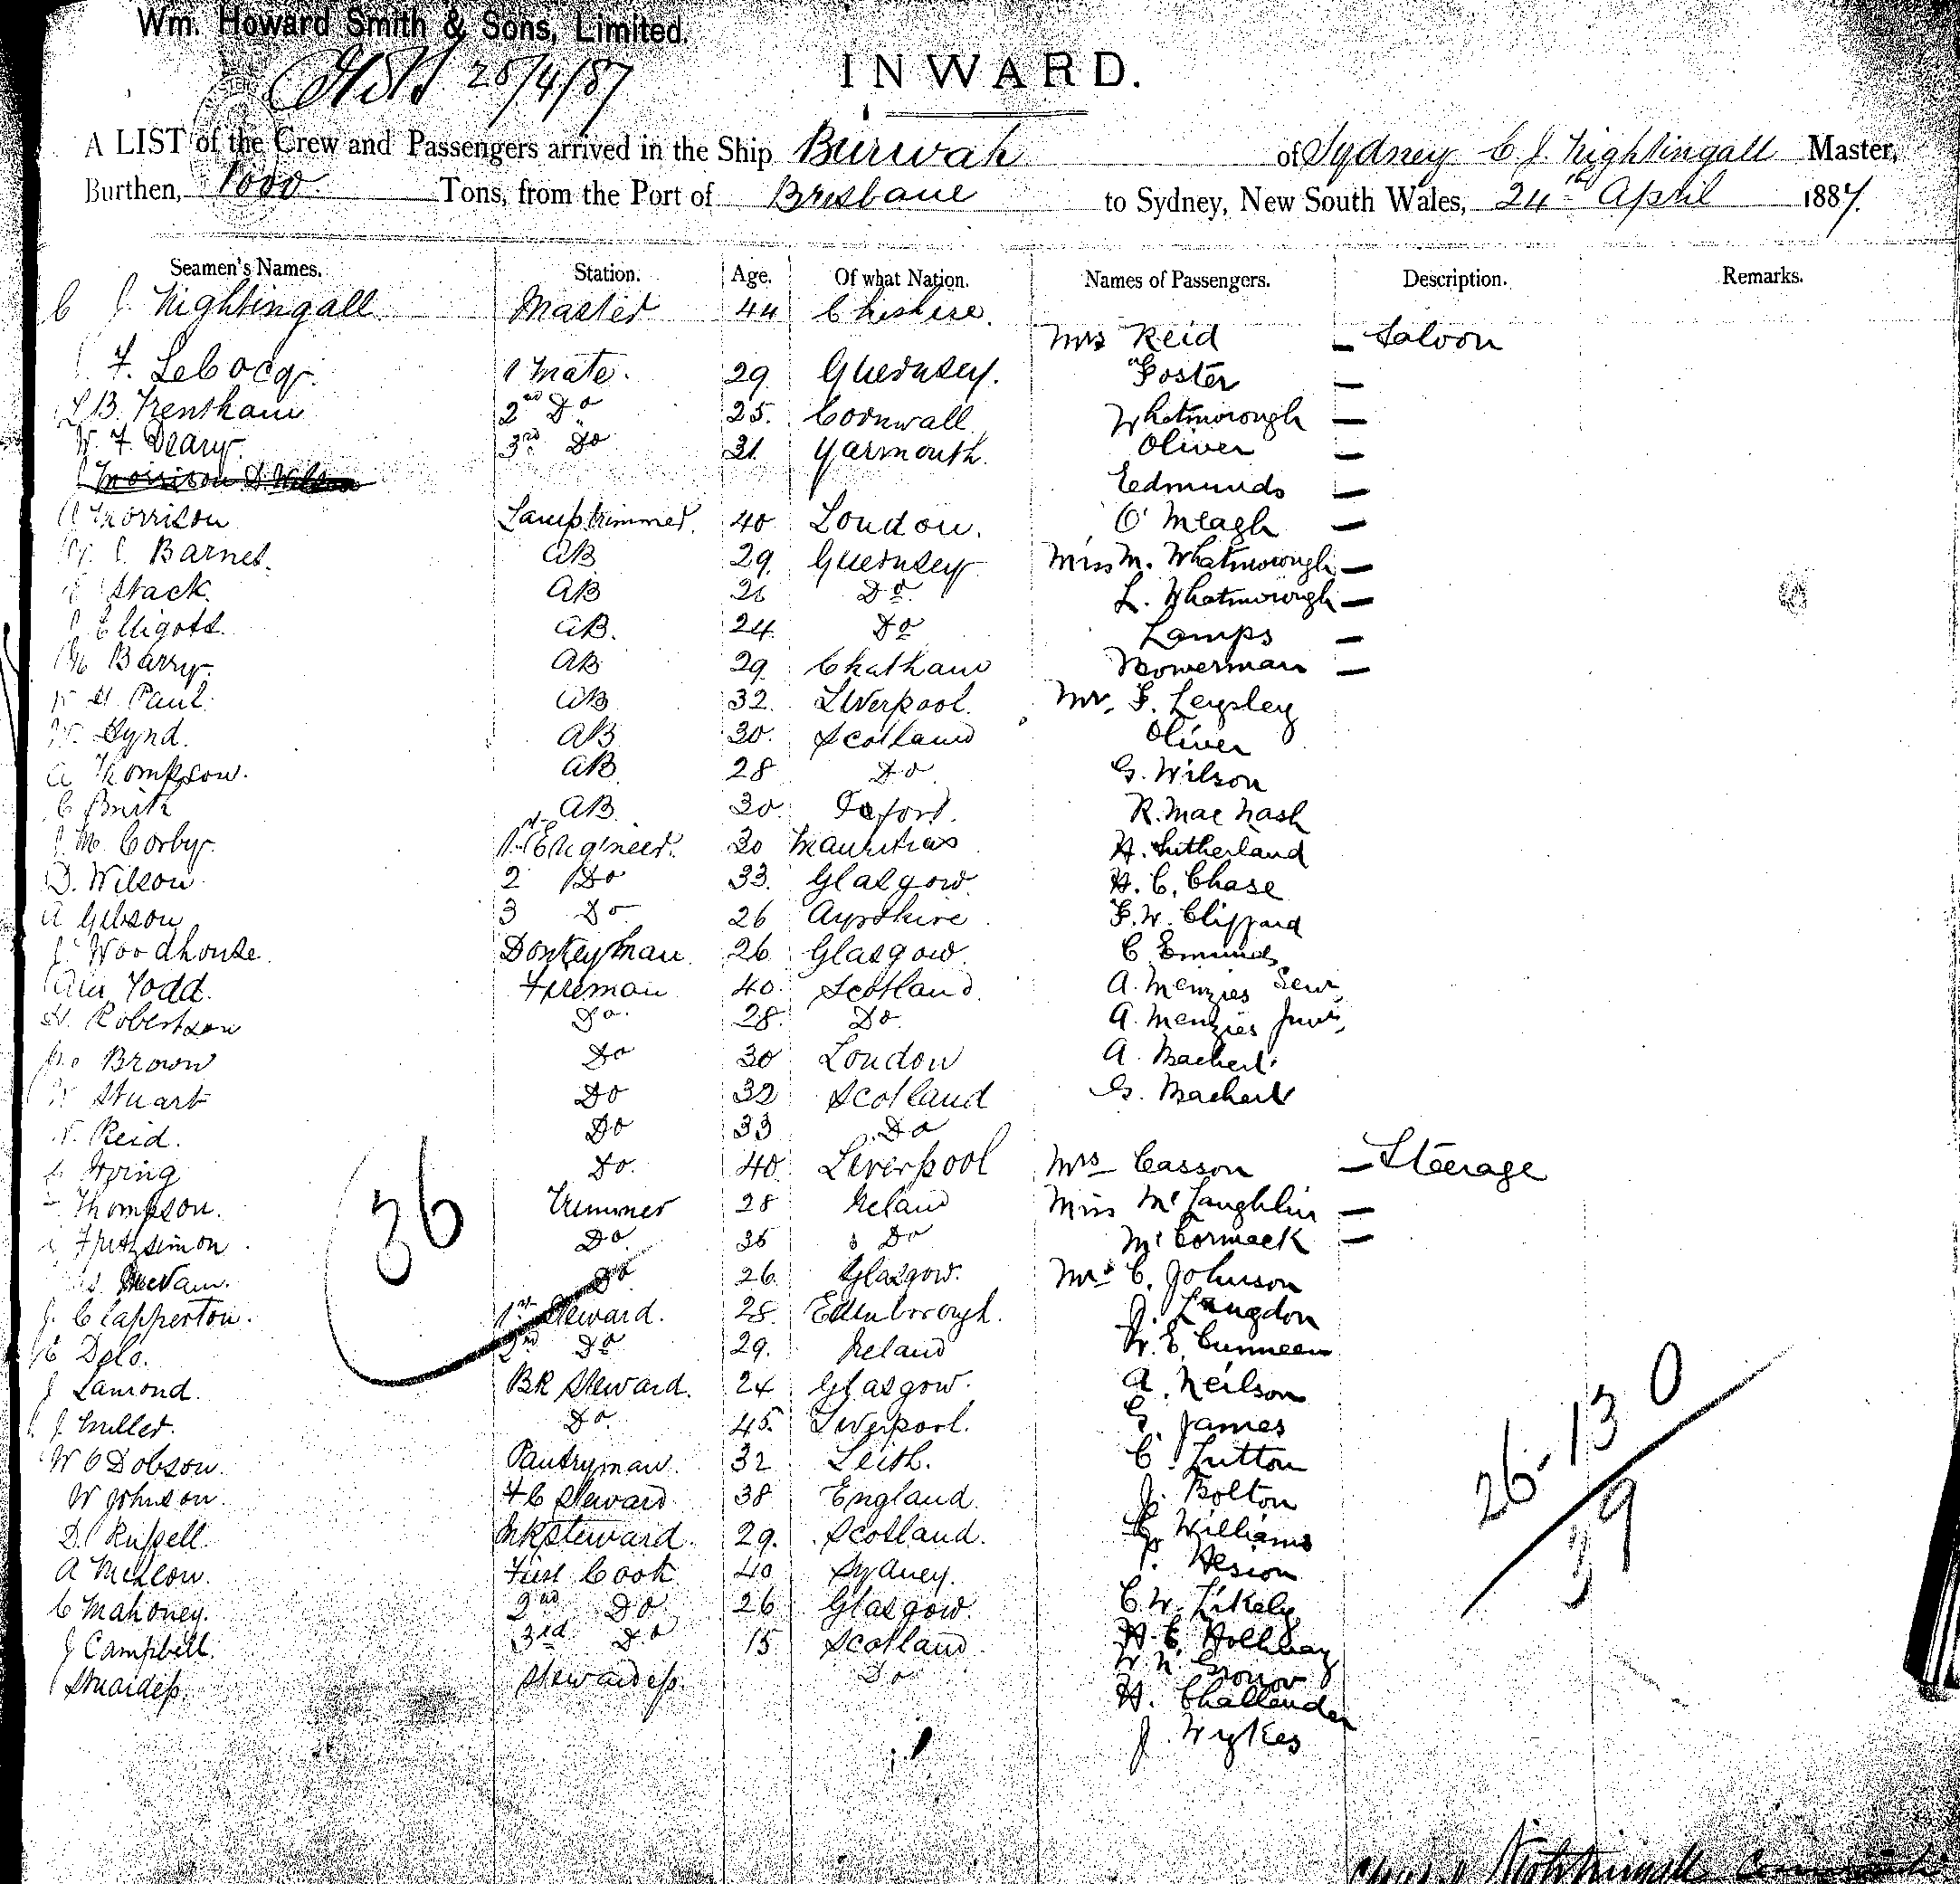 Wm. Howard Smith & Sons, Limited.
26/4/87
INWARD.
A LIST of the Crew and Passengers arrived in the Ship Burwah of Sydney C J. Nightingall Master,
Burthen, 1000 Tons, from the Port of Brisbane to Sydney, New South Wales, 24th April 1887.
Seamen's Names. Station. Age. Of what Nation. Names of Passengers. Description. Remarks.
C J. Nightingall Master 44 Cheshire.
Mrs Reid — Saloon
F. Lebocq. 1 Mate. 29 Guernsey. " Foster —
B. Trentham 2nd Do 25. Cornwall Whatmorough —
W. F. Deary. 3rd Do 31 Yarmouth. Oliver —
Morrison D. Wilson Edmunds —
Morrison Lamptrimmer. 40 London. O'Meagh —
Barnes. AB 29 Guernsey Miss M. Whatmorough —
Stack. AB 26 Do. L. Whatmorough —
Elligott. AB. 24 Do Lamps —
Barry. AB 29 Chatham Nowerman —
Paul. AB 32. Liverpool. Mr. F. Leysley
Lynd. AB 30. Scotland Oliver
A Thompson. AB 28 Do G. Wilson
C AB. 30. R. Mac Nash
J. M. Corby. 1st Engineer. 30 Mauritius H. Sutherland
D. Wilson 2 Do 33. Glasgow. H. C. Chase
A Gibson 3 Do 26 Ayrshire F. W. Clifford
J. Woodhouse. Donkeyman. 26 Glasgow. C Emunds
Todd. Fireman 40. Scotland. A. Menzies Senr,
Robertson Do. 28. Do. A. Menzies Junr,
Brown Do 30 London A.
Stuart Do 32 Scotland G.
Reid. Do 33 Do
Irving Do. 40. Liverpool Mrs Casson — Steerage
36
Thompson. Trimmer 28 Ireland Miss McLaughlin —
Fitzsimon Do. 35 Do McCormack —
Do 26. Glasgow. Mr C. Johnson
J. Clapperton. 1st Steward. 28. Edinborough. J. Langdon
Delo. 2nd Do 29. Ireland W. E. Cunneen
J Lamond. BR Steward. 24 Glasgow. A. Neilson
J. Miller. Do. 45. Liverpool. G. James
W C Dobson. Pantryman. 32 Leith. C. Lutton
W Johnson. FC Steward 38 England. J. Bolton
26. 13 0
39
D. Russell. Steward. 29. Scotland. Williams
A First Cook 40 Sydney. Hesion
C Mahoney. 2nd Do 26 Glasgow. C. W. Likely
J Campbell. 3rd Do 15 Scotland H. E. Hollway
W N Gronow
Stuardess. Stewardess. Do H. Challender
J. Wykes
Nightingall